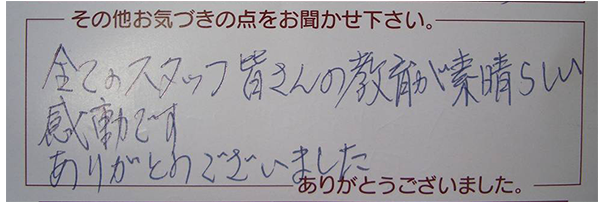 その他お気づきの点をお聞かせ下さい。
全てのスタッフ皆さんの教育が素晴らしい
感動です
ありがとうございました
ありがとうございました。